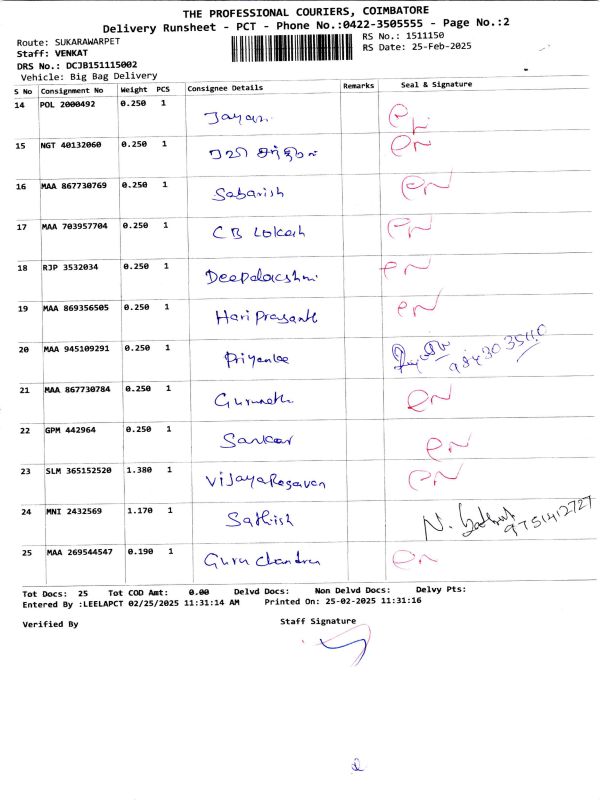 THE PROFESSIONAL COURIERS, COIMBATORE
Delivery Runsheet - PCT - Phone No.:0422-3505555 - Page No.:2
Route: SUKARAWARPET
RS No.: 1511150
Staff: VENKAT
RS Date: 25-Feb-2025
DRS No.: DCJB151115002
Vehicle: Big Bag Delivery
S No Consignment No Weight PCS Consignee Details Remarks Seal & Signature
14 POL 2000492 0.250 1 Jayan
15 NGT 40132060 0.250 1 ரவி
16 MAA 867730769 0.250 1 Sabarish
17 MAA 703957704 0.250 1 C B Lokesh
18 RJP 3532034 0.250 1 Deepalakshmi
19 MAA 869356505 0.250 1 Hari Prasanth
20 MAA 945109291 0.250 1 Priyanka
21 MAA 867730784 0.250 1 Gurunath
22 GPM 442964 0.250 1 Sankar
23 SLM 365152520 1.380 1 Vijayaragavan
24 MNI 2432569 1.170 1 Sathish N. Sathish 9751412727
25 MAA 269544547 0.190 1 Guru Chandru
Tot Docs: 25 Tot COD Amt: 0.00 Delvd Docs: Non Delvd Docs: Delvy Pts:
Entered By :LEELAPCT 02/25/2025 11:31:14 AM Printed On: 25-02-2025 11:31:16
Verified By Staff Signature